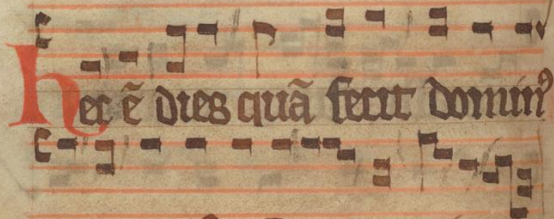 hec ē dies quā fecit domin⁹